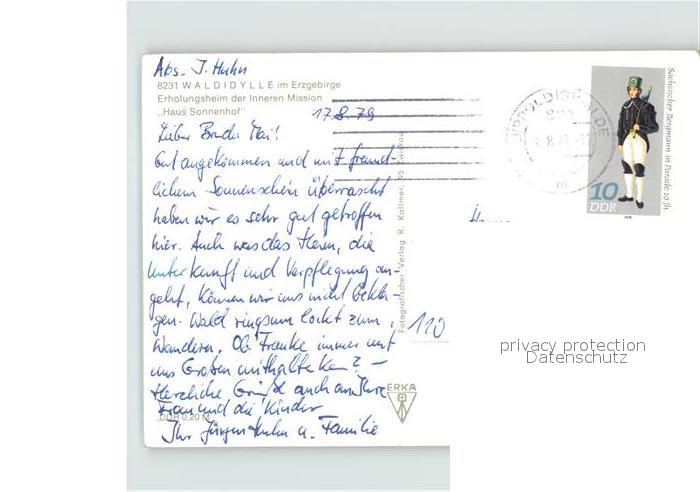 Abs. J. Huhn
8231 WALDIDYLLE im Erzgebirge
Erholungsheim der Inneren Mission
„Haus Sonnenhof"
17.8.79
Lieber Bruder Mai!
Gut angekommen und mit freund-
lichem Sonnenschein überrascht
haben wir es sehr gut getroffen
hier. Auch was das Heim, die
Unterkunft und Verpflegung an-
geht, können wir uns nicht bekla-
gen. Wald ringsum lockt zum
Wandern. Ob Frauke immer mit
uns Großen mithalten kann? –
Herzliche Grüße auch an Ihre
Frau und die Kinder
Ihr Jürgen Huhn u. Familie
DDR 0,20 M
Fotografischer Verlag R. Kallmer, 95 Zwickau
ERKA
110
Sächsischer Bergmann in Parade 19. Jh.
10
DDR
privacy protection
Datenschutz